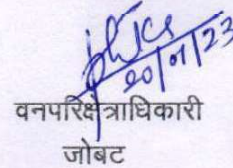 20/01/23
वनपरिक्षेत्राधिकारी
जोबट